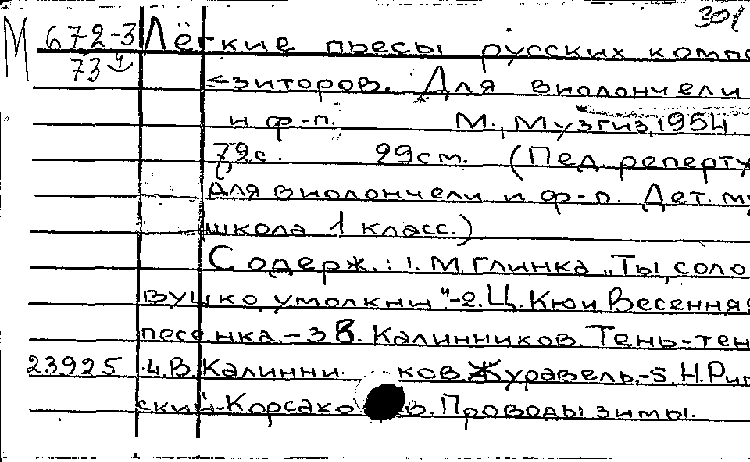 301
М 672-3 Лёгкие пьесы русских компо
73 зиторов. Для виолончели
и ф-п. М., Музгиз, 1954
72с. 29см. (Пед. реперту
для виолончели и ф-п. Дет. му
школа 1 класс.)
Содерж.: 1. М. Глинка „Ты, соло
вушко, умолкни"-2. Ц. Кюи Весенняя
песенка-3 В. Калинников. Тень-тен
23925 .4. В. Калинни ков. Журавель.-5. Н. Рим
ский-Корсако в. Проводы зимы.